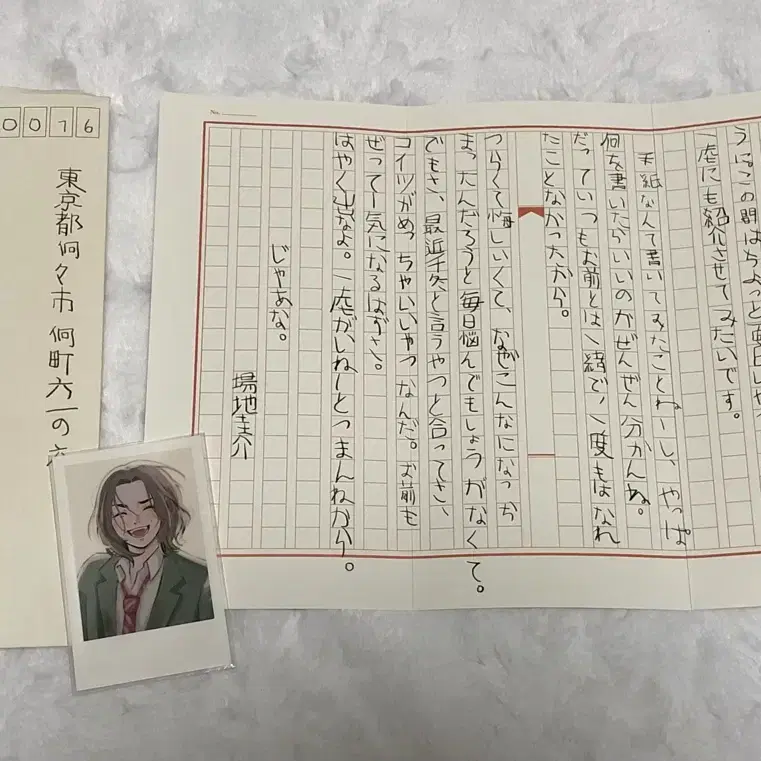 この間はちょっと
一虎にも紹介させてみたいです。
手紙なんて書いてみたことねーし、やっぱ
何を書いたらいいのかぜんぜん分かんね。
だっていつもお前とは一緒で、一度もはなれ
たことなかったから。
つらくて悔しいくて、なぜこんなになっち
まったんだろうと毎日悩んでもしょうがなくて。
でもさ、最近千冬と言うやつと合ってさ、
コイツがめっちゃいいやつなんだ。お前も
ぜってー気になるはずさ。
はやく出なよ。一虎がいねーとつまんねから。
じゃあな。
場地圭介
No.
0076
東京都何々市何町六一の